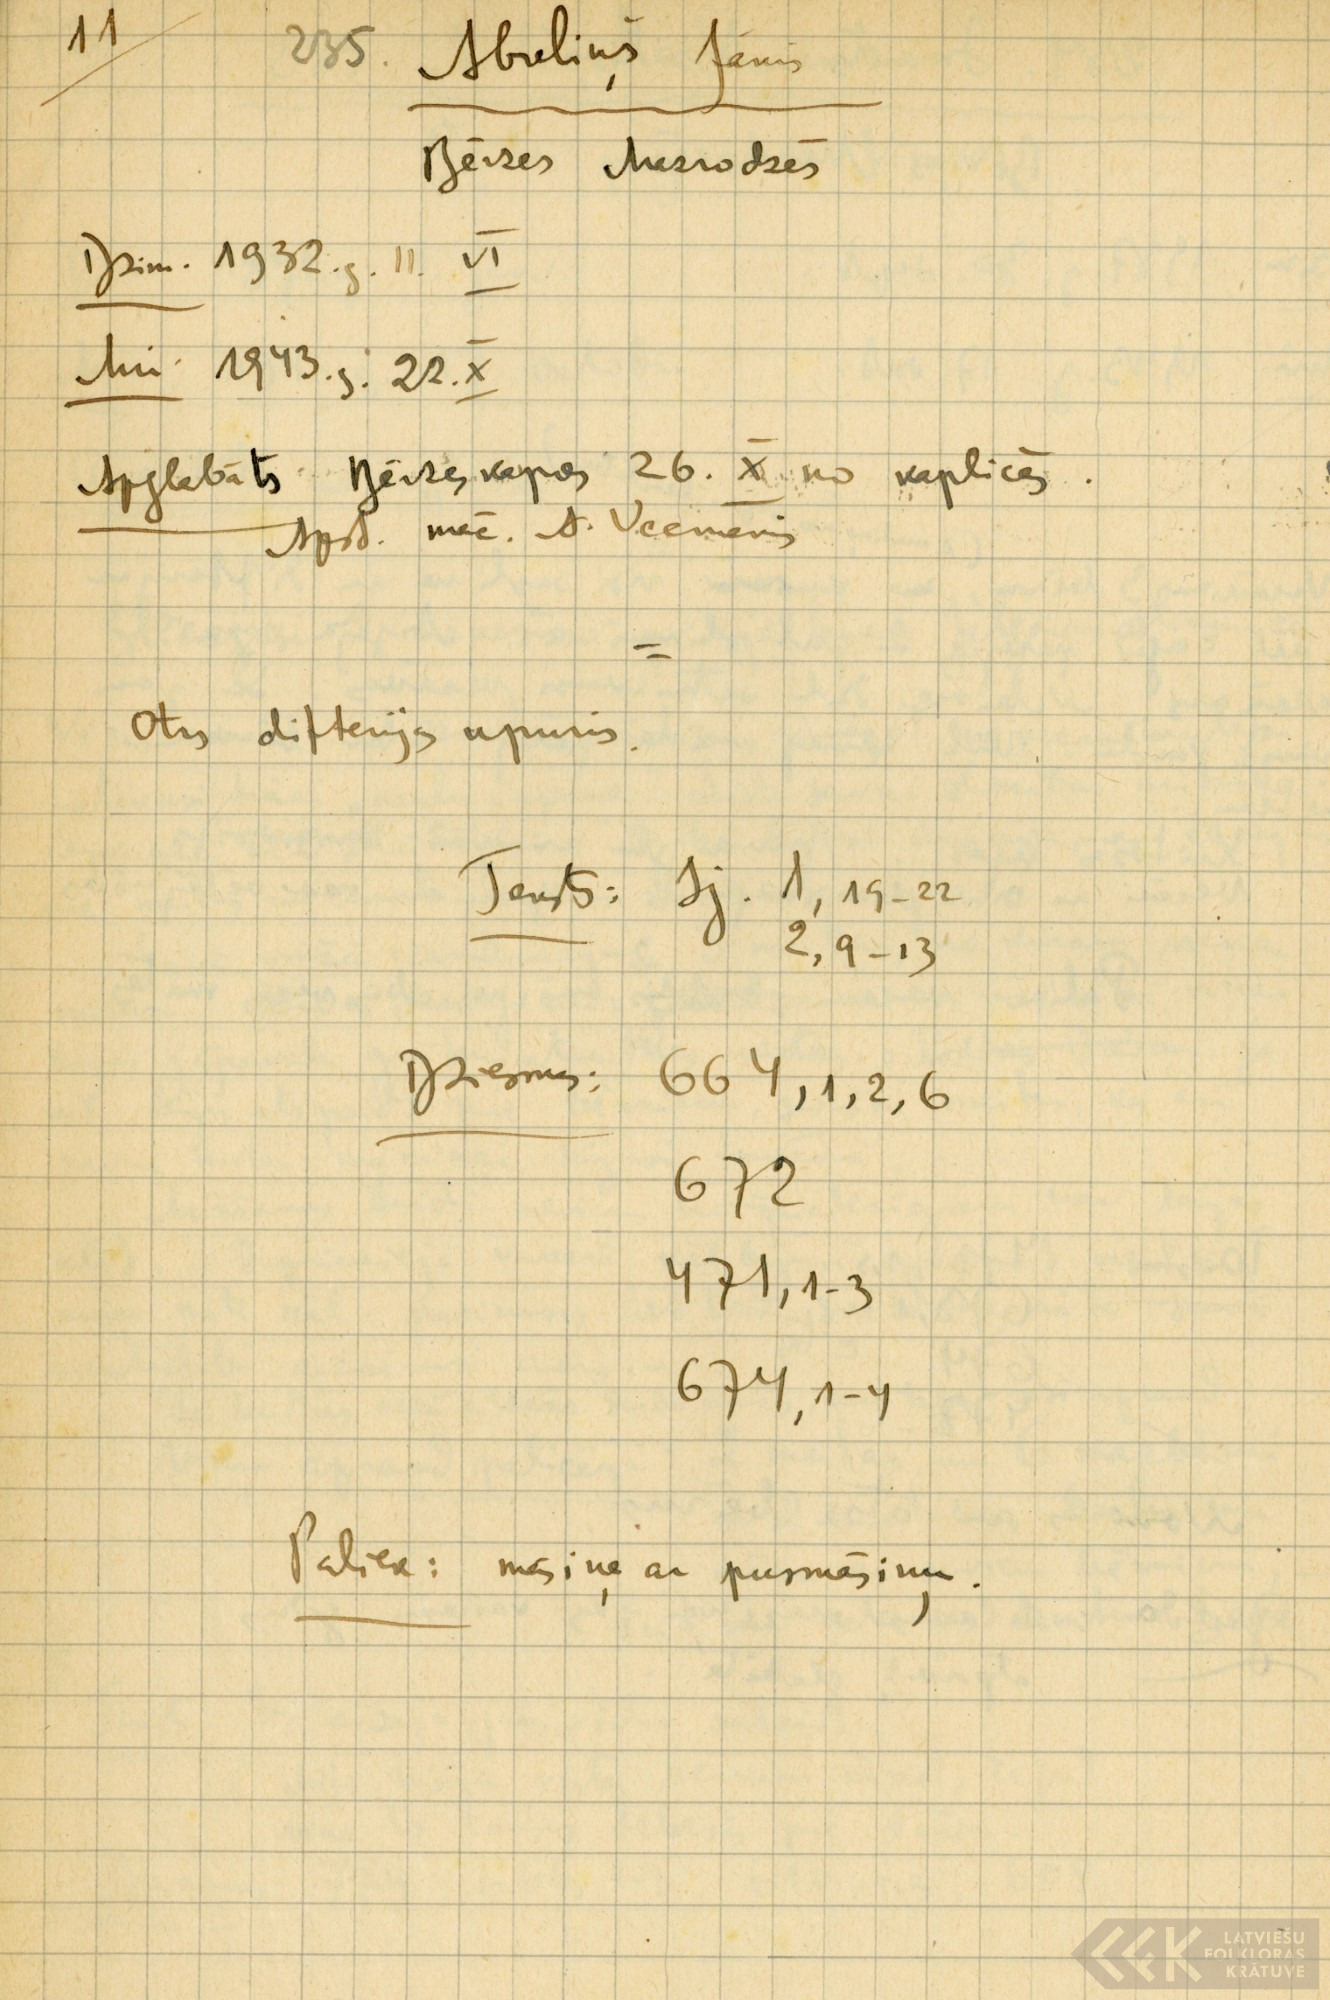 11 235. Abeliņš Jānis
Bērzes Mežrodzēs
Dzim. 1932.g. 11. VI
Mir. 1943.g. 22. X
Apglabāts Bērzes kapos 26. X no kaplicas.
Apb. māc. A. Veemanis
=
Otrs difterijas upuris.
Teksts: Ij. 1, 19-22
2, 9-13
Dziesmas: 664, 1, 2, 6
672
471, 1-3
674, 1-4
Paliek: māsiņa ar pusmāsiņu.
LATVIEŠU
FOLKLORAS
KRĀTUVE